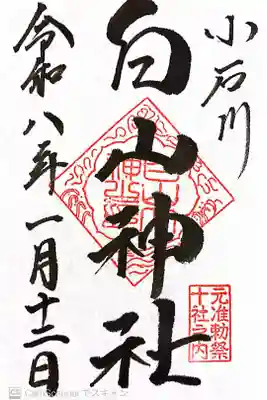 小石川
白山神社
元准勅祭
十社之内
令和八年一月十二日
でスキャン